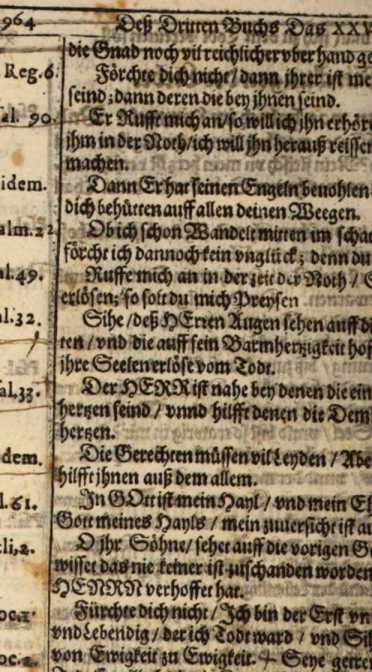 964 Deß Dritten Buchs Das XXV
die Gnad noch vil reichlicher vber hand ge
Reg.6. Förchte dich nicht / dann jhrer ist me
seind; dann deren die bey jhnen seind.
al. 90. Er Rufft mich an / so will ich jhn erhör
jhm in der Noth / ich will jhn herauß reissen
machen.
idem. Dann Er hat seinen Engeln beuohlen
dich behütten auff allen deinen Weegen.
alm.22. Ob ich schon Wandelt mitten im schat
förcht ich dannoch kein vnglück; denn du
al.49. Ruffe mich an in der zeit der Noth / S
erlösen; so solt du mich Preysen
al.32. Sihe / deß HErren Augen sehen auff di
ten / vnd die auff sein Barmhertzigkeit hof
jhre Seelen erlöst vom Todt.
al.33. Der HERR ist nahe bey denen die ein
hertzen seind / vnnd hilfft denen die Dem
hertzen.
dem. Die Gerechten müssen vil Leyden / Abe
hilfft jhnen auß dem allem.
l.61. In GOtt ist mein Hayl / vnd mein Eh
Gott meines Hayls / mein zuuersicht ist au
li,2. O jhr Söhne / sehet auff die vorigen Ge
wisset das nie keiner ist zuschanden worden
HERRN verhoffet hat.
oc.1. Fürchte dich nicht / Ich bin der Erst vn
vnd Lebendig / der ich Todt ward / vnd Sih
von Ewigkeit zu Ewigkeit.
oc.2. Seye getre